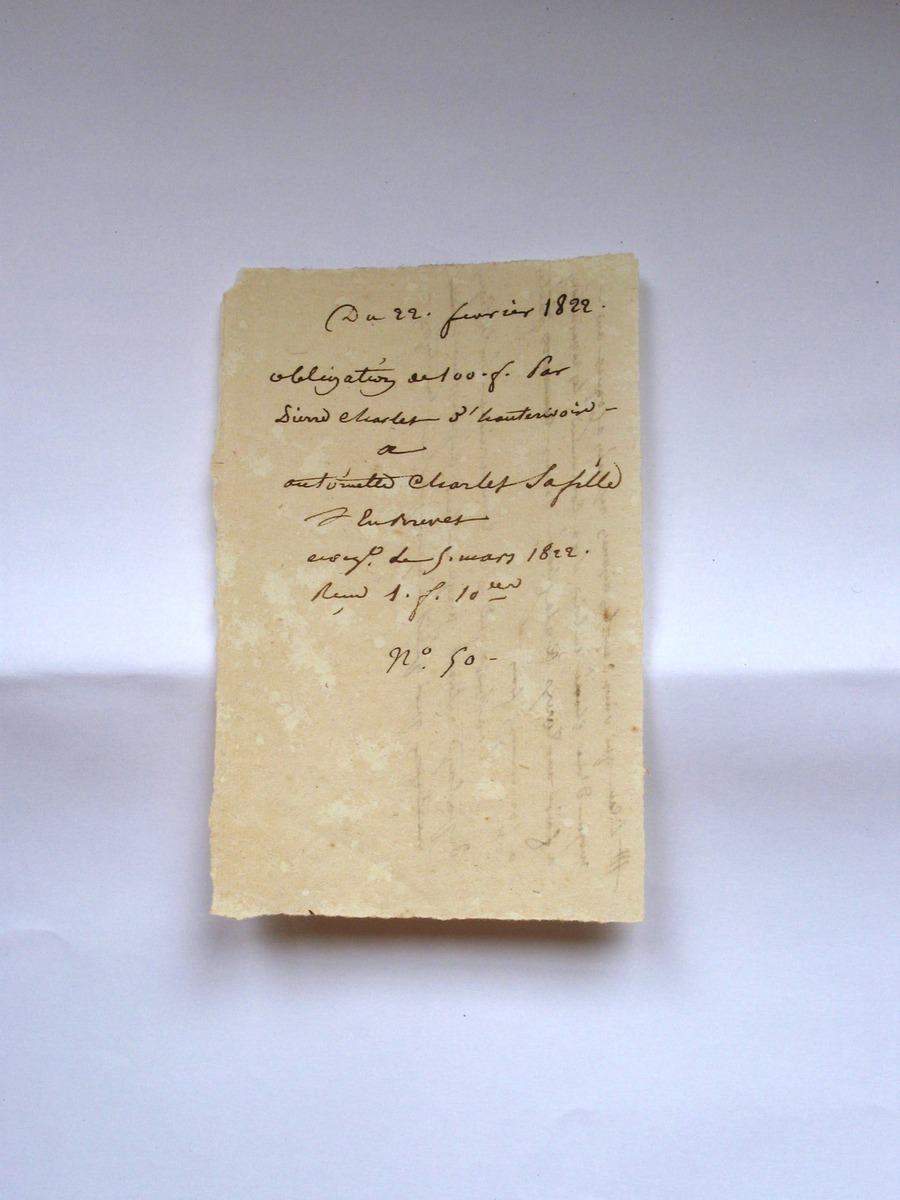 Du 22. fevrier 1822.
obligation de 100. f. Par
Pierre Charles d'hauterivoire -
a
antoinette Charles Sa fille
En Brevet
enreg.º le 5. mars 1822.
Recu 1. f. 10
Nº. 50 -